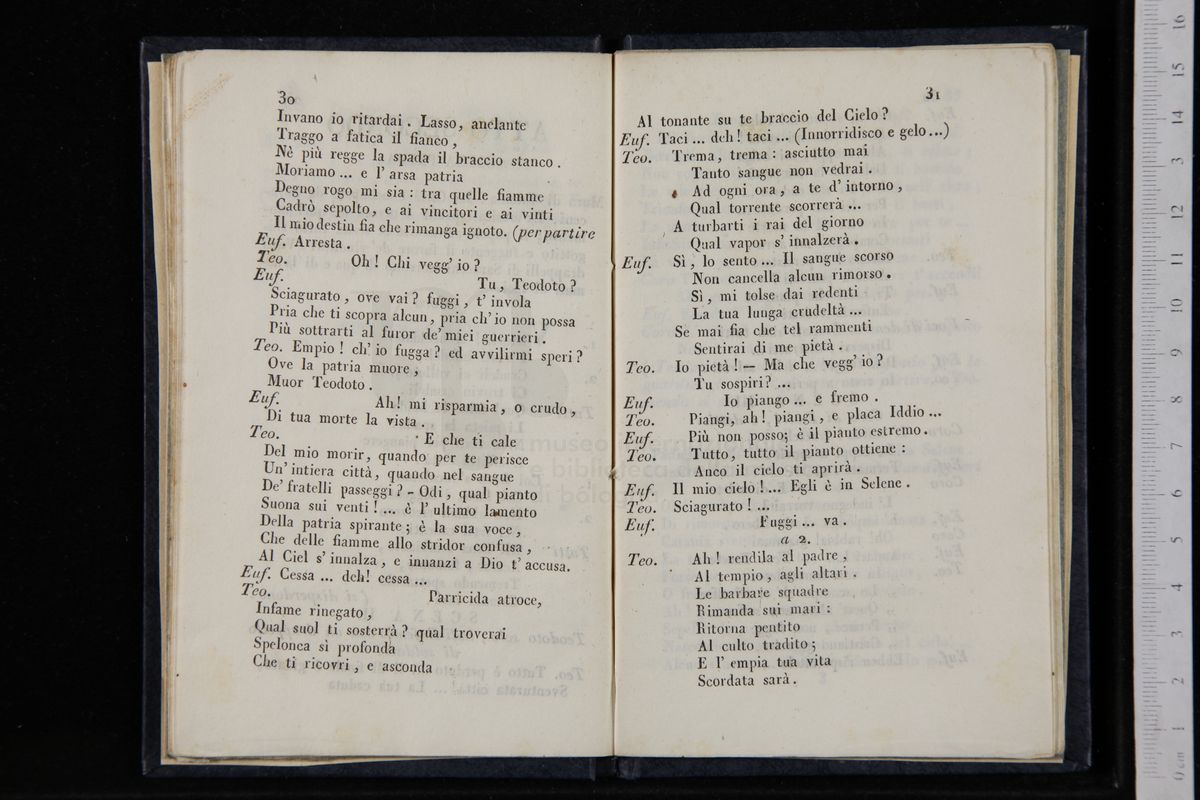 30
Invano io ritardai. Lasso, anelante
Traggo a fatica il fianco,
Nè più regge la spada il braccio stanco.
Moriamo ... e l' arsa patria
Degno rogo mi sia: tra quelle fiamme
Cadrò sepolto, e ai vincitori e ai vinti
Il mio destin fia che rimanga ignoto. (per partire
Euf. Arresta.
Teo. Oh! Chi vegg' io?
Euf. Tu, Teodoto?
Sciagurato, ove vai? fuggi, t' invola
Pria che ti scopra alcun, pria ch' io non possa
Più sottrarti al furor de' miei guerrieri.
Teo. Empio! ch' io fugga? ed avvilirmi speri?
Ove la patria muore,
Muor Teodoto.
Euf. Ah! mi risparmia, o crudo,
Di tua morte la vista.
Teo. E che ti cale
Del mio morir, quando per te perisce
Un' intiera città, quando nel sangue
De' fratelli passeggi? - Odi, qual pianto
Suona sui venti! ... è l' ultimo lamento
Della patria spirante; è la sua voce,
Che delle fiamme allo stridor confusa,
Al Ciel s' innalza, e innanzi a Dio t' accusa.
Euf. Cessa ... deh! cessa ...
Teo. Parricida atroce,
Infame rinegato,
Qual suol ti sosterrà? qual troverai
Spelonca sì profonda
Che ti ricovri, e asconda
31
Al tonante su te braccio del Cielo?
Euf. Taci ... deh! taci ... (Innorridisco e gelo...)
Teo. Trema, trema: asciutto mai
Tanto sangue non vedrai.
Ad ogni ora, a te d' intorno,
Qual torrente scorrerà ...
A turbarti i rai del giorno
Qual vapor s' innalzerà.
Euf. Sì, lo sento ... Il sangue scorso
Non cancella alcun rimorso.
Sì, mi tolse dai redenti
La tua lunga crudeltà ...
Se mai fia che tel rammenti
Sentirai di me pietà.
Teo. Io pietà! — Ma che vegg' io?
Tu sospiri? ...
Euf. Io piango ... e fremo.
Teo. Piangi, ah! piangi, e placa Iddio ...
Euf. Più non posso; è il pianto estremo.
Teo. Tutto, tutto il pianto ottiene:
Anco il cielo ti aprirà.
Euf. Il mio cielo! ... Egli è in Selene.
Teo. Sciagurato! ...
Euf. Fuggi ... va.
a 2.
Teo. Ah! rendila al padre,
Al tempio, agli altari.
Le barbare squadre
Rimanda sui mari:
Ritorna pentito
Al culto tradito;
E l' empia tua vita
Scordata sarà.